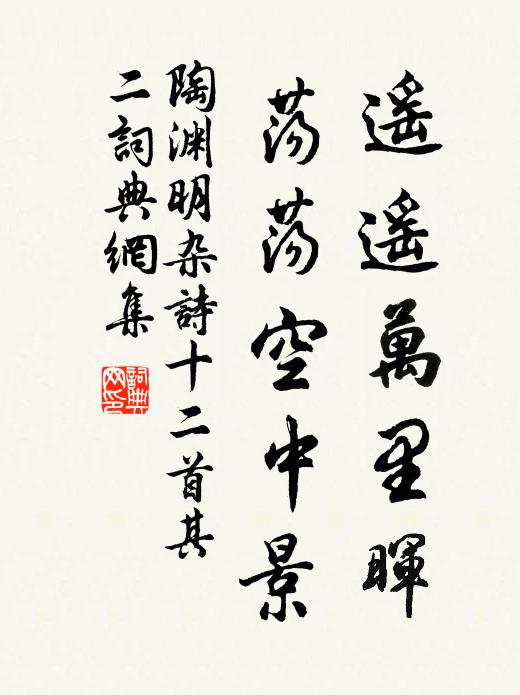 遥遥萬里暉
蕩蕩空中景
陶渊明杂詩十二首其
二詞典網集
詞典
网印